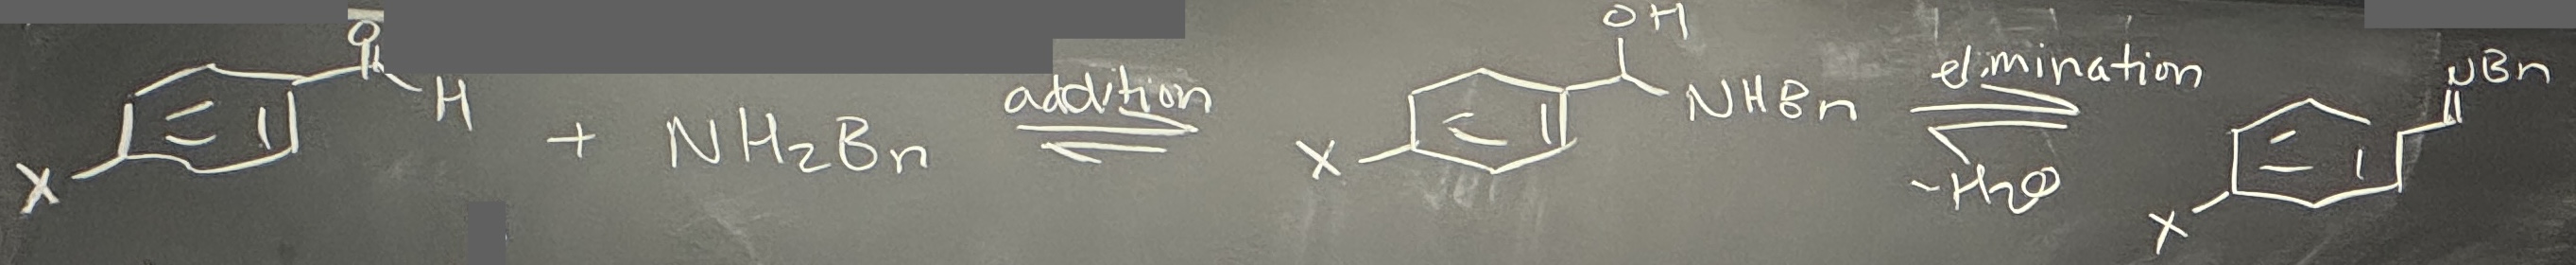 O
H
X
+ NH2Bn
addition
OH
NHBn
X
elimination
-H2O
NBn
X